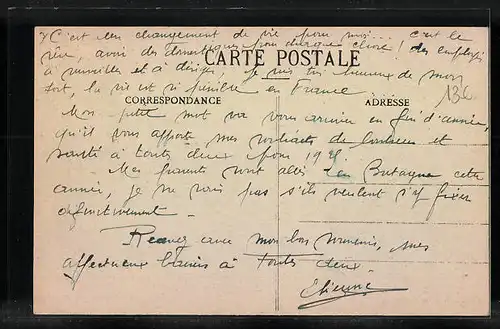 C'est un changement de vie pour moi... c'est le
rêve, avoir des domestiques pour chaque chose! des employés
CARTE POSTALE
à surveiller et à diriger, je suis très heureux de mon
sort, la vie est si pénible en France
CORRESPONDANCE
ADRESSE
136
Mon petit mot va vous arriver en fin d'année,
qu'il vous apporte mes souhaits de bonheur et
santé à toutes deux pour 19
Mes parents sont allés en Bretagne cette
année, je ne sais pas s'ils veulent s'y fixer
définitivement.
Recevez avec mon bon souvenir, mes
affectueux baisers à toutes deux.
Etienne